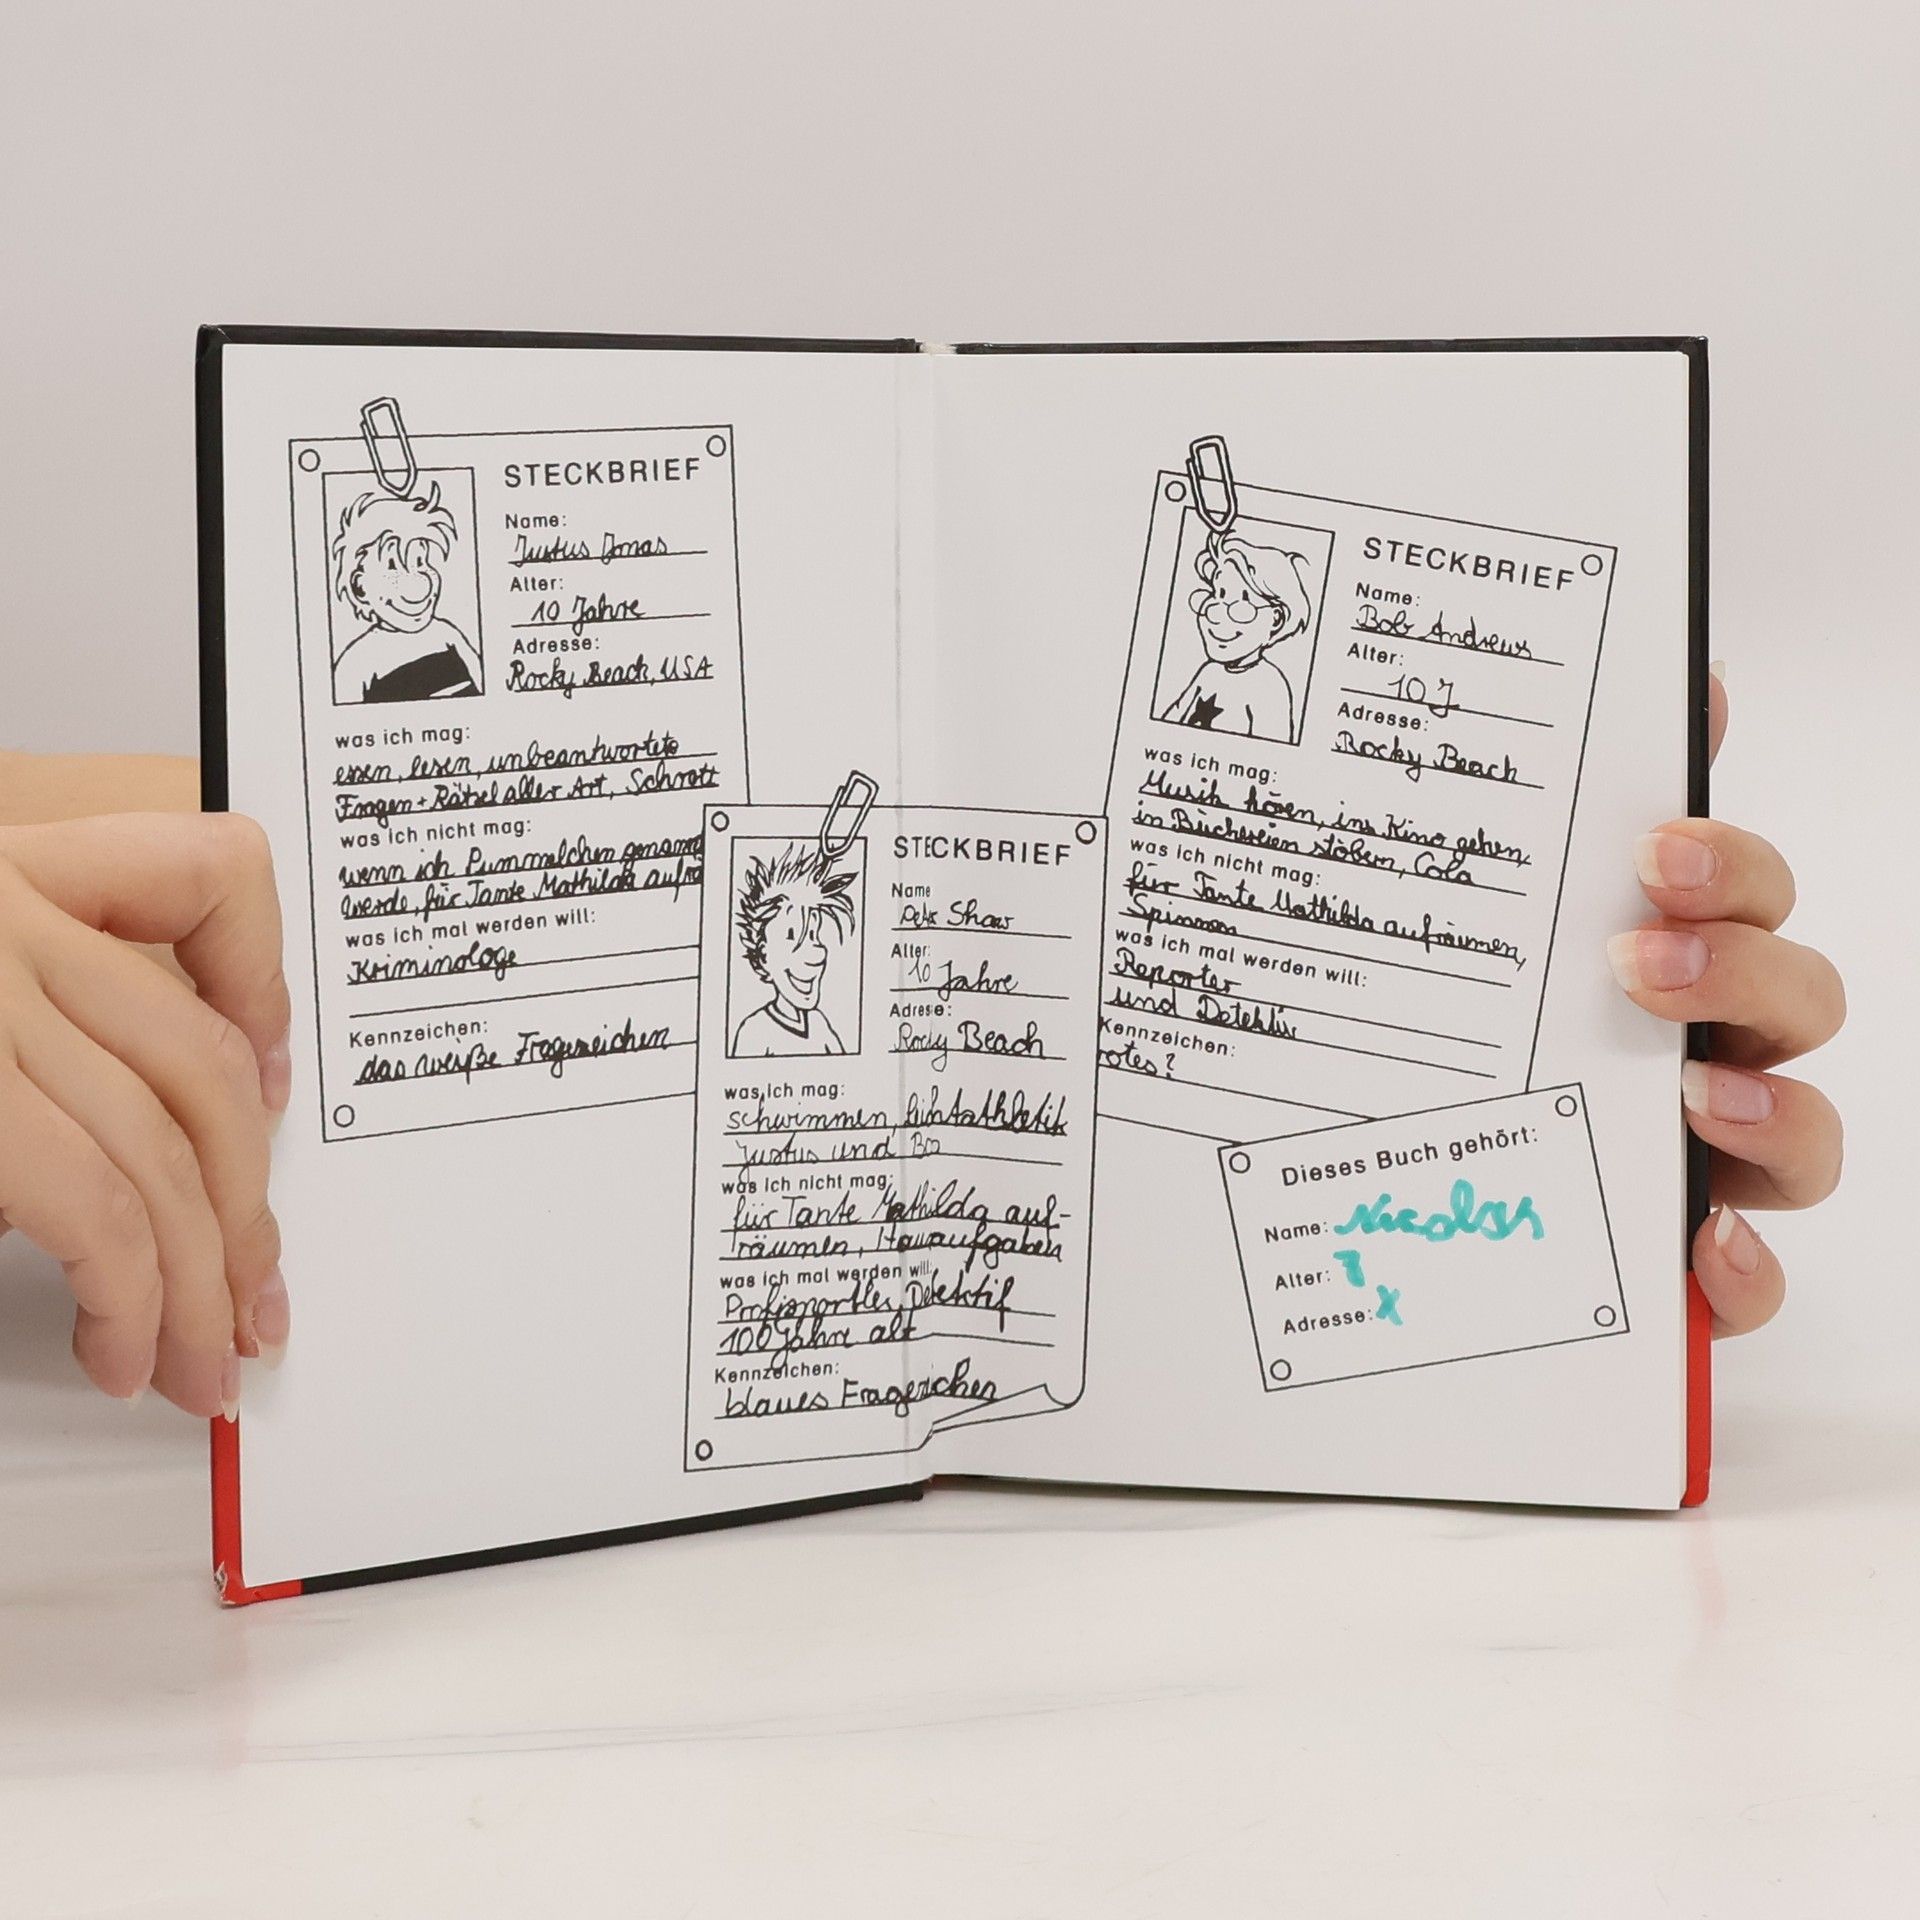 STECKBRIEF
Name:
Justus Jonas
Alter:
10 Jahre
Adresse:
Rocky Beach, USA
was ich mag:
essen, lesen, unbeantwortete
Fragen + Rätsel aller Art, Schrott
was ich nicht mag:
wenn ich Pummelchen genannt
werde, für Tante Mathilda aufrä
was ich mal werden will:
Kriminologe
Kennzeichen:
das weiße Fragezeichen
STECKBRIEF
Name
Peter Shaw
Alter:
10 Jahre
Adresse:
Rocky Beach
was ich mag:
schwimmen, Leichtathletik
Justus und Bob
was ich nicht mag:
für Tante Mathilda auf-
räumen, Hausaufgaben
was ich mal werden will:
Profisportler, Detektif
100 Jahre alt
Kennzeichen:
blaues Fragezeichen
STECKBRIEF
Name:
Bob Andrews
Alter:
10 J
Adresse:
Rocky Beach
was ich mag:
Musik hören, ins Kino gehen,
in Büchereien stöbern, Cola
was ich nicht mag:
für Tante Mathilda aufräumen,
Spinnen
was ich mal werden will:
Reporter
und Detektiv
Kennzeichen:
rotes?
Dieses Buch gehört:
Name: Nicolas
Alter: 7
Adresse: X